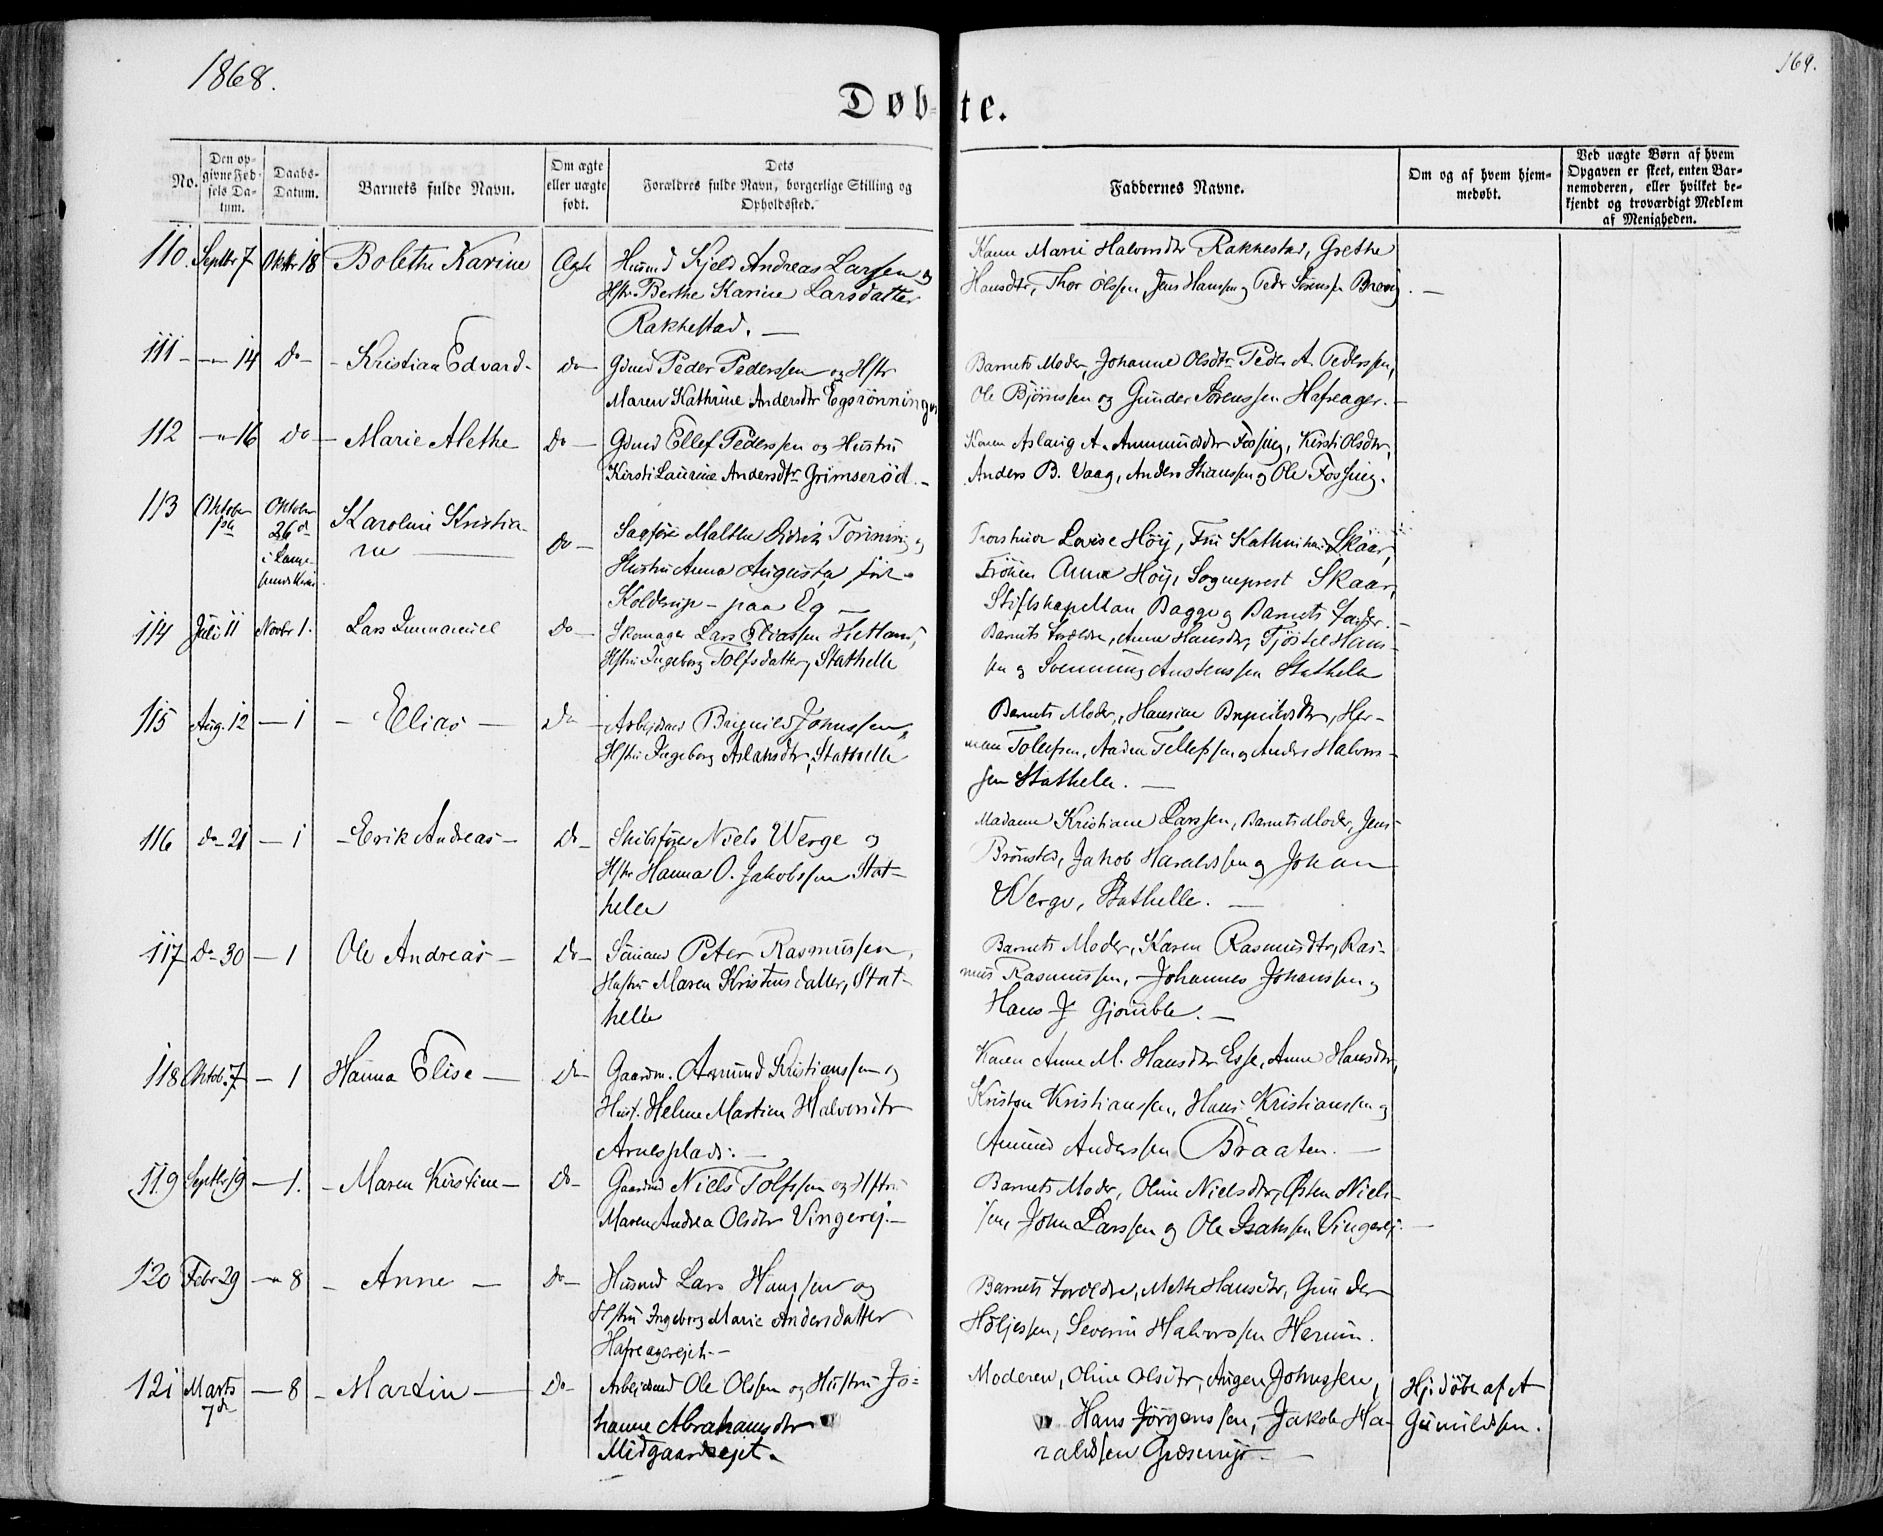 1868.
169.
Døbte.
No.
Den opgivne Fødsels Datum.
Daabs-Datum.
Barnets fulde Navn.
Om ægte eller uægte født.
Dets Forældres fulde Navn, borgerlige Stilling og Opholdssted.
Faddernes Navne.
Om og af hvem hjemmedøbt.
Ved uægte Børn af hvem Opgaven er skeet, enten Barnemoderen, eller hvilket bekjendt og troværdigt Medlem af Menigheden.
110. Septbr 7 Oktbr 18 Bolethe Karine Ægte Husmd Kjeld Andreas Larssen og
Hstr Berthe Karine Larsdatter
Rakkestad. —
Karen Marie Halvorsdtr Rakkestad, Grethe
Hansdtr, Thor Olssen, Jens Hanssen og Peder Sørenssen
111 — 14 Do — Kristian Edvard — do — Gdmd Peder Pederssen og Hstr
Maren Kathrine Andersdtr Egsrønningen
Barnets Moder, Johanne Olsdtr Peder A. Pederssen,
Ole Bjørnssen og Gunder Sørenssen Hafreager. —
112 — 16 do — Marie Alethe Do — Gdmd Ellef Pederssen og Hustru
Kirsti Laurine Andersdtr Grimserød. —
Karen Aslaug A. Ammundsdtr Fossing, Kirsti Olsdtr,
Anders B. Vaag, Anders og Ole Fossing.
113 Oktober Oktober 26d i Kirke. Karoline Kristiane — Do — Sagfører Malthe Didrik Tønning og
Hustru Anna Augusta født
Kolderup — paa Eg —
Lovise Høy, Fru Skaar,
Frøken Anna Høy, Sogneprest Skaar,
Stiftskapellan Bagge og Barnets Fader. —
114 Juli 11 Novbr 1. Lars Immanuel Do — Skomager Lars Eliassen Hetland,
Hstru Ingeborg Tolfsdatter, Stathelle
Barnets Forældre, Anne Hansdtr, Tjøstel Hans-
sen og Svennung Stathelle
115 Aug. 12 — 1 — Elias — Do — Arbeidsmd Johnssen,
Hstru Ingeborg Aslaksdtr, Stathelle
Barnets Moder, Hansine Her-
man Tolefsen, Aaden Tellefssen og Anders Halvors-
sen Stathelle. —
116 do 21 — 1 — Eerik Andreas — Do — Skibsfører Niels Werge og
Hstr Hanna O. Jakobssen Stat-
helle
Madame Kristiane Larssen, Barnets Moder, Jens
Brønsted, Jakob Haraldssen og Johan
Werge, Stathelle. —
117 Do 30 — 1 Ole Andreas — Do — Sømand Peter Rasmussen,
Hustru Maren Kristensdatter, Stat-
helle
Barnets Moder, Karen Rasmusdtr, Ras-
mus Rasmussen, Johannes Johanssen og
Hans J Gjømble. —
118 Oktob. 7 — 1 Hanna Elise — Do — Gaardm. Amund Kristianssen og
Hust. Helene Martine Halvorsdtr
Arnesplads. —
Karen Anne M. Hansdtr Esse, Anne Hansdtr,
Kristen Kristianssen, Hans Kristianssen og
Amund Anderssen Braaten. —
119 Septbr 19 — 1. — Maren Kirstine — Do — Gaardmd Niels Tolfssen og Hstru
Maren Andrea Olsdtr Vingerej. —
Barnets Moder, Oline Nielsdtr, Østen Niels-
sen, John Larssen og Ole Isakssen Vingerej. —
120 Febr 29 — 8 — Anne — Do — Husmd Lars Hanssen og
Hstru Ingeborg Marie Andersdatter
Hafreagerejet. —
Barnets Forældre, Methe Hansdtr, Gunder
Høljessen, Severin Halvorssen Herum.
121 Marts 7de — 8 — Martin — Do — Arbejdsmd Ole Olssen og Hustru Jo-
hanne Abrahamsdtr
Midgaardsejet. —
Moderen, Oline Olsdtr, Augen Johnssen,
Hans Jørgenssen, Jakob Ha-
raldssen —
Hjdøbt af A
Gunnildsen.